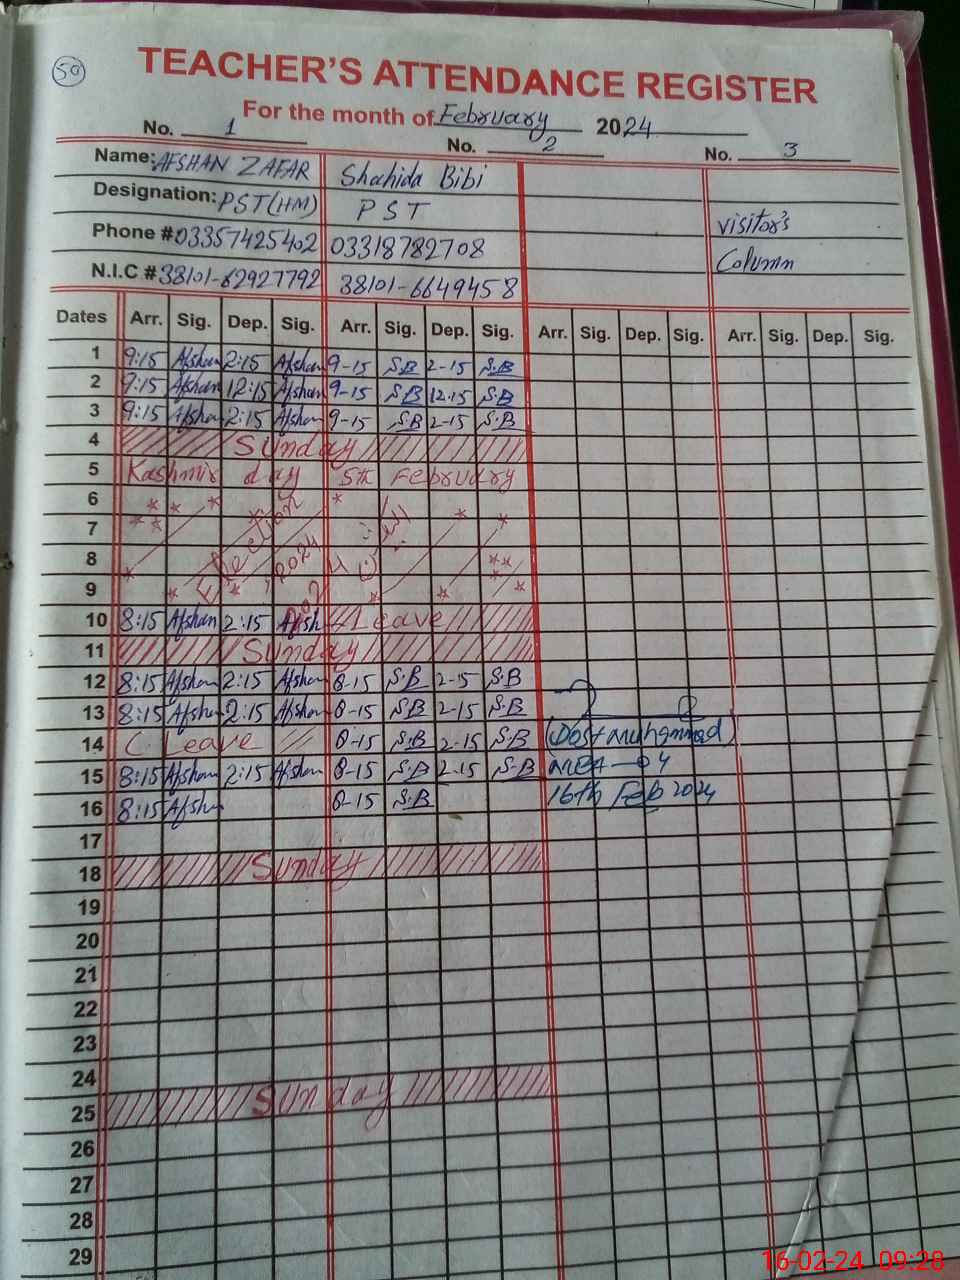 50
TEACHER'S ATTENDANCE REGISTER
For the month of February 2024
No. 1 No. 2 No. 3
Name: AFSHAN ZAFAR Shahida Bibi
Designation: PST(HM) PST visitor's
Phone # 03357425402 03318782708 Column
N.I.C # 38101-62927792 38101-6649458
Dates Arr. Sig. Dep. Sig. Arr. Sig. Dep. Sig. Arr. Sig. Dep. Sig. Arr. Sig. Dep. Sig.
1 9:15 Afshan 2:15 Afshan 9-15 S.B 2-15 S.B
2 9:15 Afshan 12:15 Afshan 9-15 S.B 12.15 S.B
3 9:15 Afshan 2:15 Afshan 9-15 S.B 2-15 S.B
4 Sunday
5 Kashmir day 5th February
6
7
8
9
Election 2024
الیکشن 2024
10 8:15 Afshan 2:15 Afsh Leave
11 Sunday
12 8:15 Afshan 2:15 Afshan 8-15 S.B 2-15 S.B
13 8:15 Afshan 2:15 Afshan 8-15 S.B 2-15 S.B
14 C. Leave 8-15 S.B 2-15 S.B (Dost Muhammad)
15 8:15 Afshan 2:15 Afshan 8-15 S.B 2-15 S.B MEA-04
16 8:15 Afshan 8-15 S.B 16th Feb 2024
17
18 Sunday
19
20
21
22
23
24
25 Sunday
26
27
28
29
16-02-24 09:28